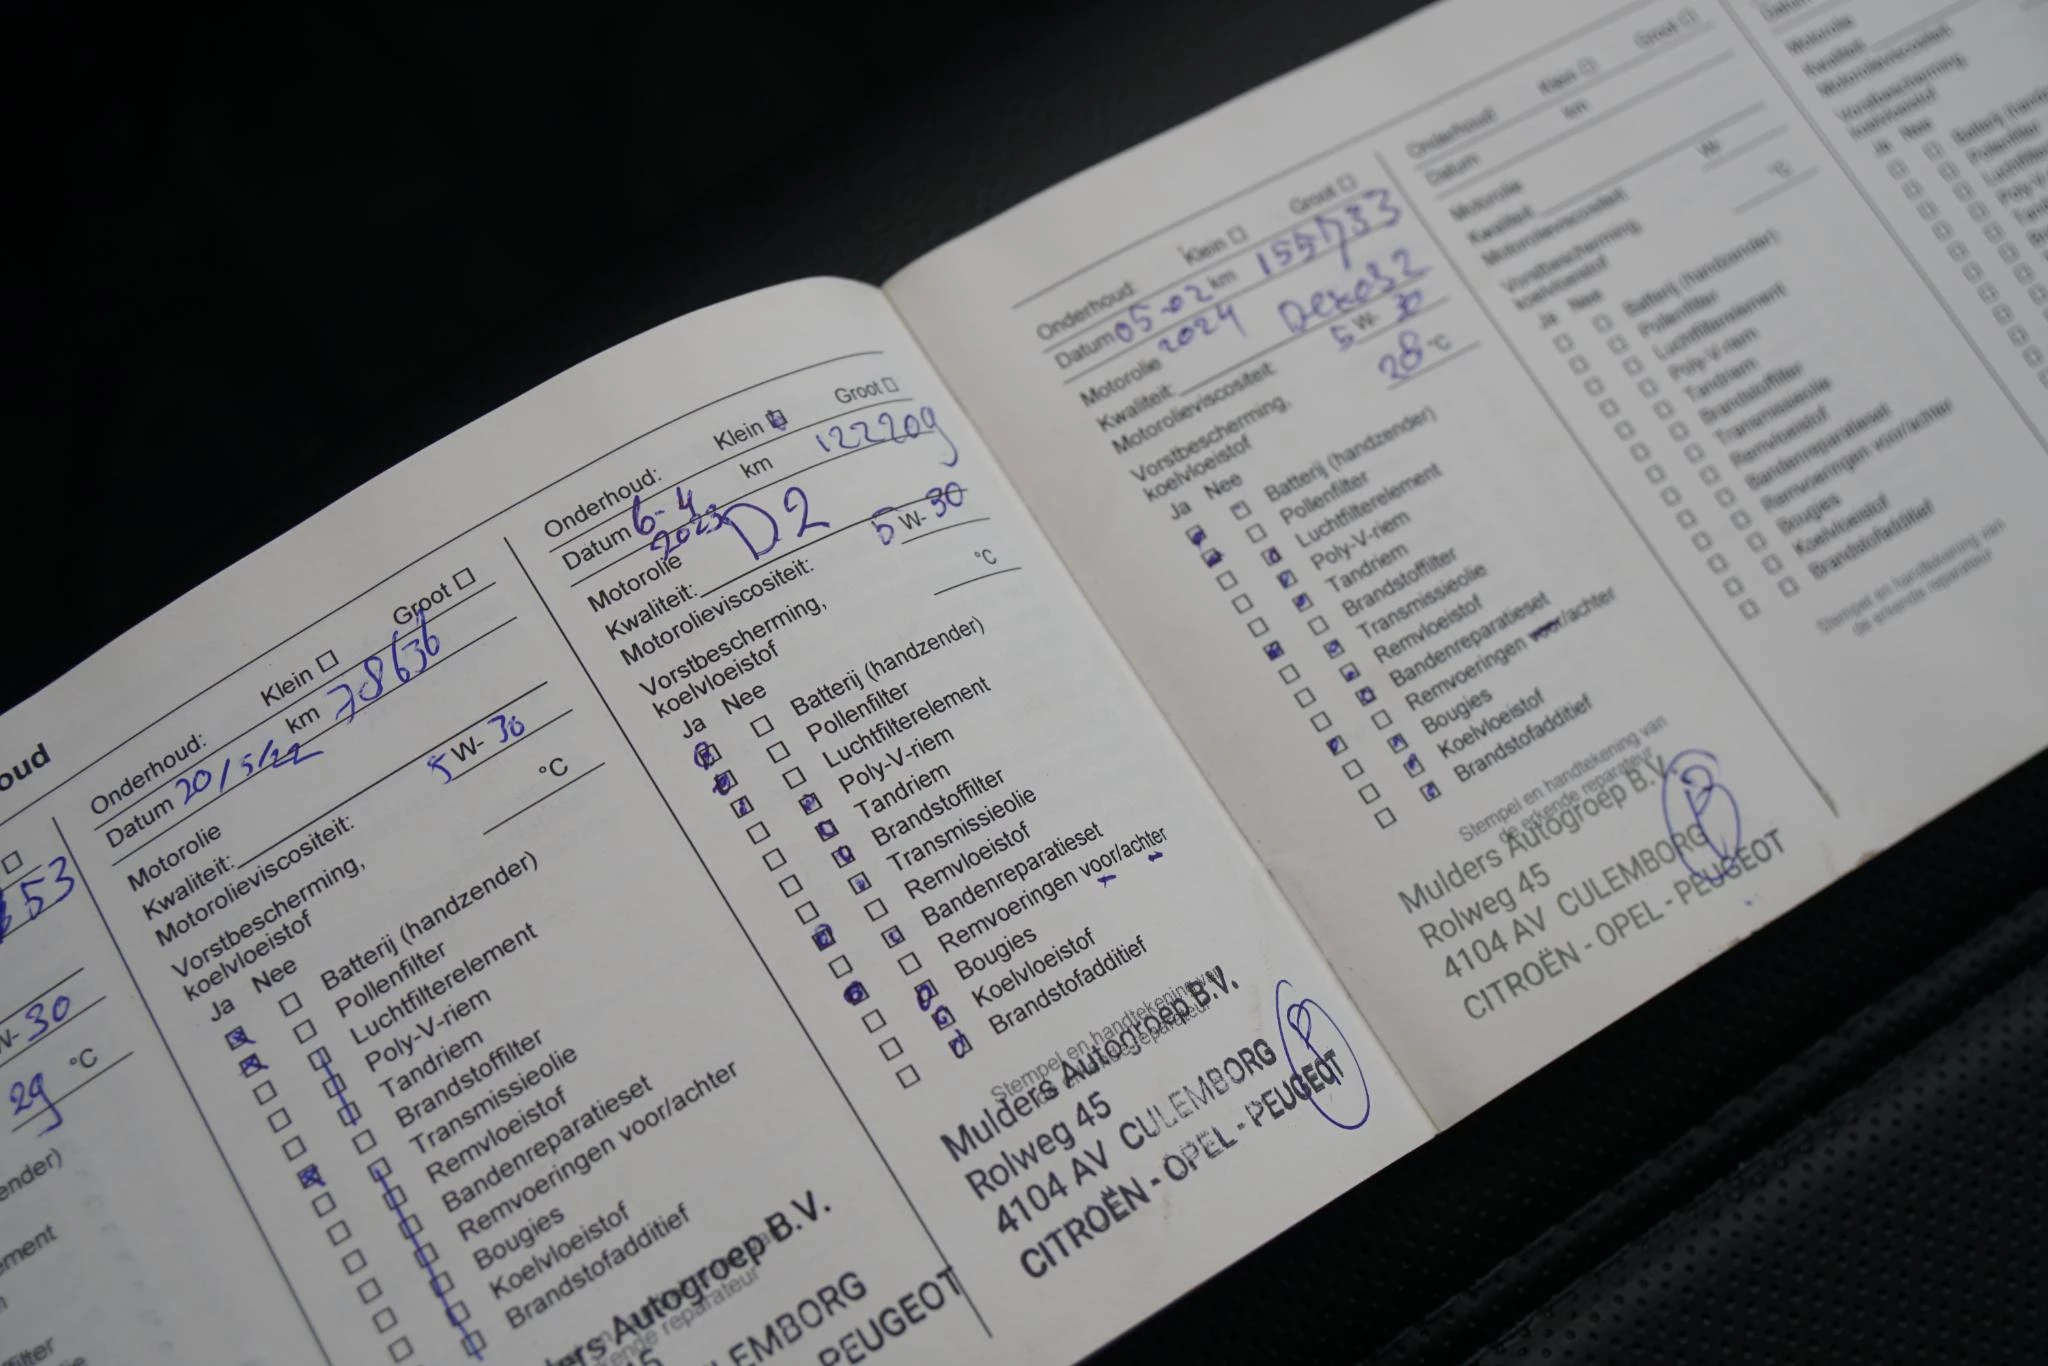 oud
53
W-30
29 °C
Onderhoud: Klein Groot
Datum 20/5/22 km 78636
Motorolie
Kwaliteit:
Motorolieviscositeit: 5 W- 30
Vorstbescherming,
koelvloeistof °C
Ja Nee
Batterij (handzender)
Pollenfilter
Luchtfilterelement
Poly-V-riem
Tandriem
Brandstoffilter
Transmissieolie
Remvloeistof
Bandenreparatieset
Remvoeringen voor/achter
Bougies
Koelvloeistof
Brandstofadditief
ers Autogroep B.V.
LEMBORG
PEUGEOT
Onderhoud: Klein Groot
Datum 6-4 2023 km 122209
Motorolie
Kwaliteit: D2
Motorolieviscositeit: 5 W- 30
Vorstbescherming,
koelvloeistof °C
Ja Nee
Batterij (handzender)
Pollenfilter
Luchtfilterelement
Poly-V-riem
Tandriem
Brandstoffilter
Transmissieolie
Remvloeistof
Bandenreparatieset
Remvoeringen voor/achter
Bougies
Koelvloeistof
Brandstofadditief
Stempel en handtekening van
de erkende reparateur
Mulders Autogroep B.V.
Rolweg 45
4104 AV CULEMBORG
CITROËN - OPEL - PEUGEOT
Onderhoud: Klein Groot
Datum 05-02 2024 km 155733
Motorolie
Kwaliteit:
Motorolieviscositeit: 5 W- 30
Vorstbescherming,
koelvloeistof 28 °C
Ja Nee
Batterij (handzender)
Pollenfilter
Luchtfilterelement
Poly-V-riem
Tandriem
Brandstoffilter
Transmissieolie
Remvloeistof
Bandenreparatieset
Remvoeringen voor/achter
Bougies
Koelvloeistof
Brandstofadditief
Stempel en handtekening van
de erkende reparateur
Mulders Autogroep B.V.
Rolweg 45
4104 AV CULEMBORG
CITROËN - OPEL - PEUGEOT
Onderhoud: Klein Groot
Datum km
Motorolie
Kwaliteit:
Motorolieviscositeit: W-
Vorstbescherming,
koelvloeistof °C
Ja Nee
Batterij (handzender)
Pollenfilter
Luchtfilterelement
Poly-V-riem
Tandriem
Brandstoffilter
Transmissieolie
Remvloeistof
Bandenreparatieset
Remvoeringen voor/achter
Bougies
Koelvloeistof
Brandstofadditief
Stempel en handtekening van
de erkende reparateur
Motorolie
Kwaliteit:
Motorolieviscositeit:
Vorstbescherming,
koelvloeistof
Ja Nee